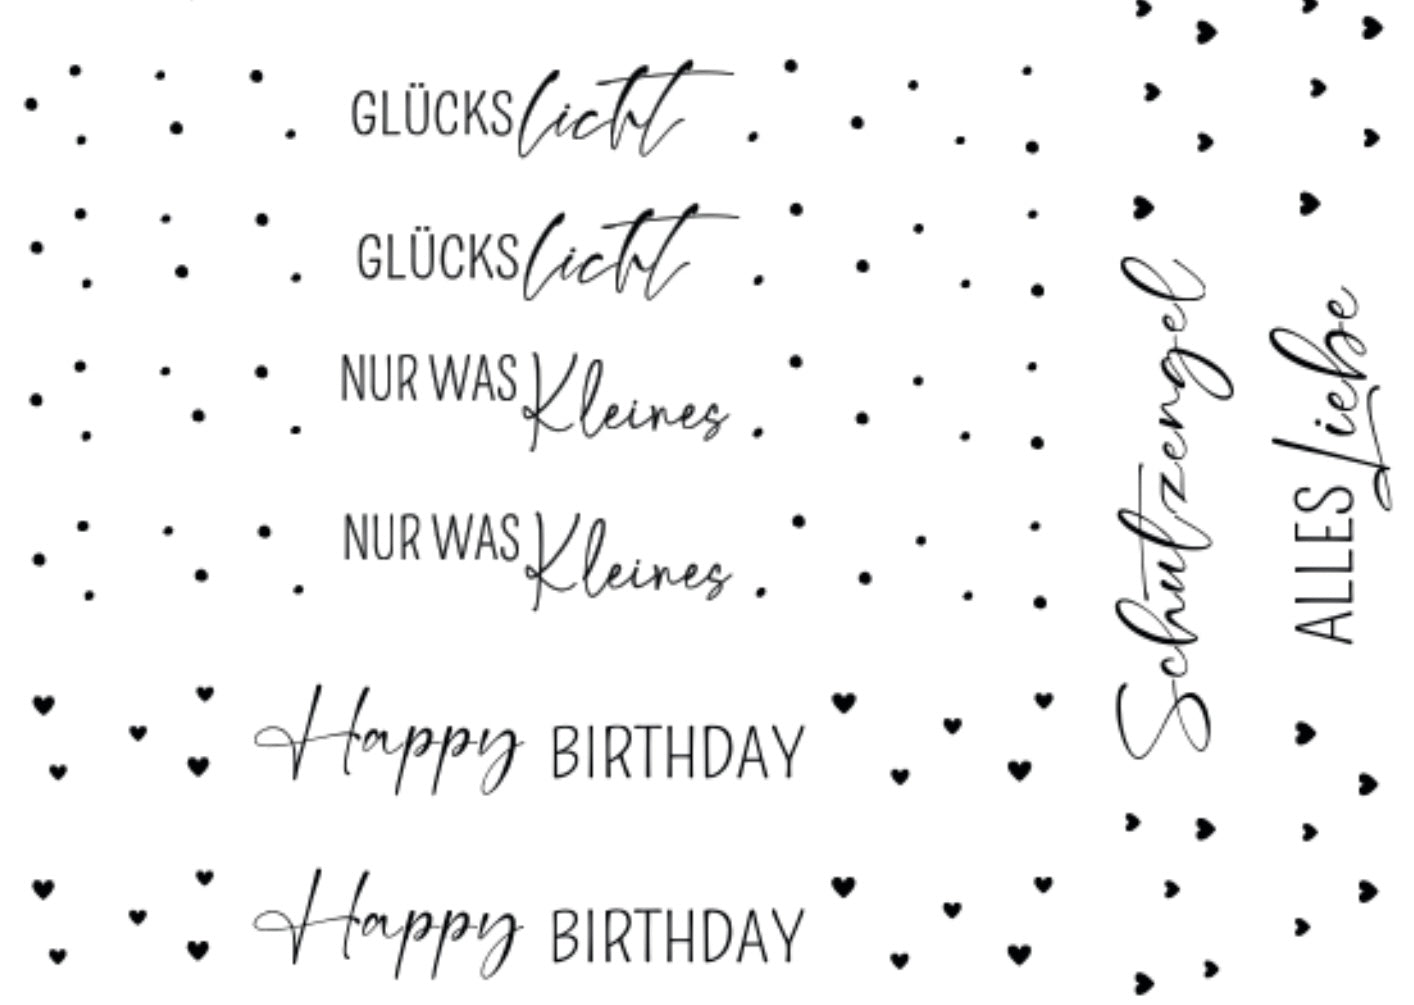 GLÜCKSlicht
GLÜCKSlicht
NUR WAS Kleines
NUR WAS Kleines
Happy BIRTHDAY
Happy BIRTHDAY
Schutzengel
ALLES Liebe